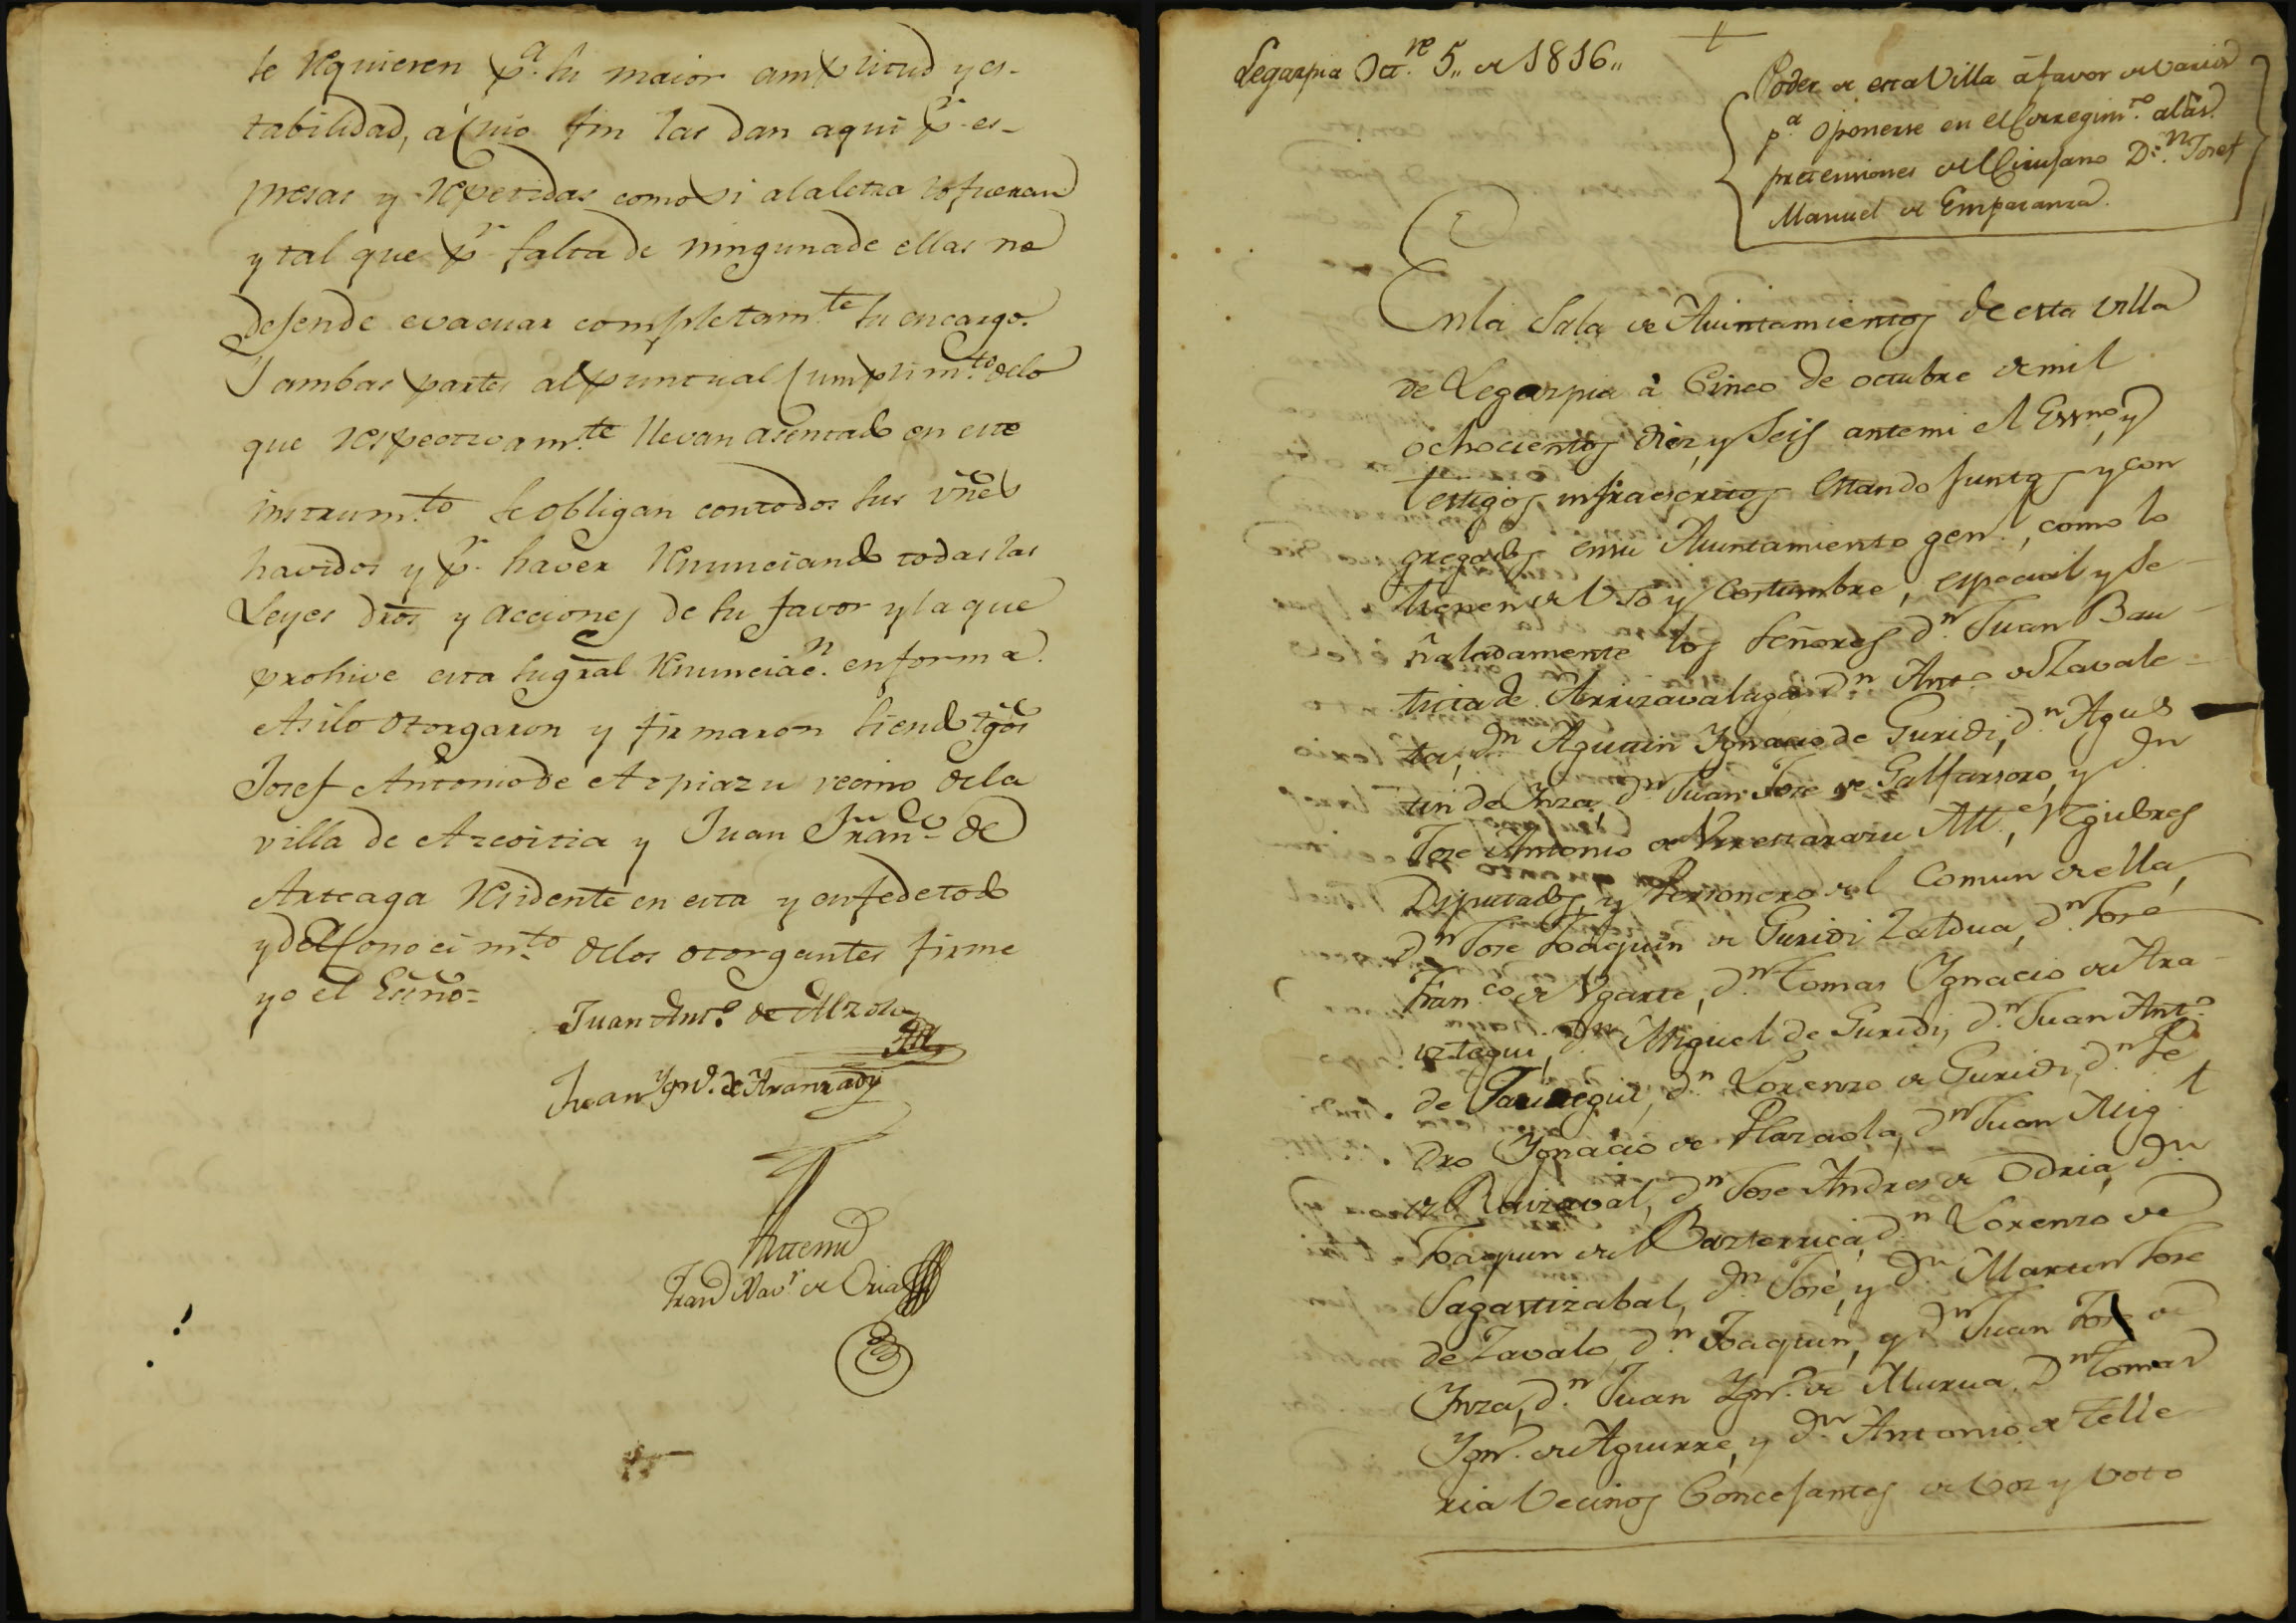 se requieren p.ª su maior amplitud y es-
tabilidad, á cuio fin las dan aqui p.r es-
presas y repetidas como si ala letra lo fueran
y tal que p.r falta de ninguna de ellas no
dejen de evacuar completam.te su encargo.
Y ambas partes al puntual cumplim.to delo
que respectivam.te llevan asentado en este
instrum.to se obligan con todos sus vñes
havidos y p.r haver renunciando todas las
Leyes dros y acciones de su favor y la que
prohive esta su gral renunciac.n en forma.
Asi lo otorgaron y firmaron siendo tgos
Josef Antonio de Azpiazu vecino dela
villa de Azcoitia y Juan Fran.co de
Arteaga residente en esta y en fe de todo
y del conocim.to delos otorgantes firme
yo el Esño=
Juan Ant.o de Alzola
Juan Ygn.o de Aranzadi
Ante mi
Fran.co Xav.r de Oria
Legazpia Oct.re 5,, de 1816,,
Poder de esta Villa á favor de varios
p.a oponerse en el Corregim.to alas
pretensiones del Cirujano D.n Josef
Manuel de Emparanza.
En la Sala de Aiuntamientos de esta villa
de Legazpia à Cinco de octubre de mil
ochocientos diez, y Seis ante mi el Essno, y
testigos infraescritos estando Juntos y con
gregados en su Aiuntamiento gen.l, como lo
tienen de Vso y Costumbre, especial y Se-
ñaladamente los Señores d.n Juan Bau-
tista de Arrizavalaga d.n Ant.o de Zavale-
ta, d.n Agustin Ygnacio de Guridi, d.n Agus
tin de Ynza, d.n Juan Jose de Galfarsoro, y d.n
Jose Antonio de Urrestarazu Alc.e, Regidores
Diputados, y Personero del Comun de ella,
d.n Jose Joaquin de Guridi Zaldua, d.n José
Fran.co de Ugarte, d.n Tomas Ygnacio de Ara-
iztegui, d.n Miguel de Guridi, d.n Juan Ant.o
de Jauregui, d.n Lorenzo de Guridi, d.n Pe
dro Ygnacio de Plazaola, d.n Juan Mig.l
de Ravizaval, d.n Jose Andres de Odria, d.n
Joaquin de Basterrica, d.n Lorenzo de
Sagastizabal, d.n José, y d.n Martin Jose
de Zavalo, d.n Joaquin, y d.n Juan Jose de
Ynza, d.n Juan Ygn.o de Murua, D.n Tomas
Ygn.o de Aguirre, y d.n Antonio de Telle
ria Vecinos Concejantes de Voz y Voto